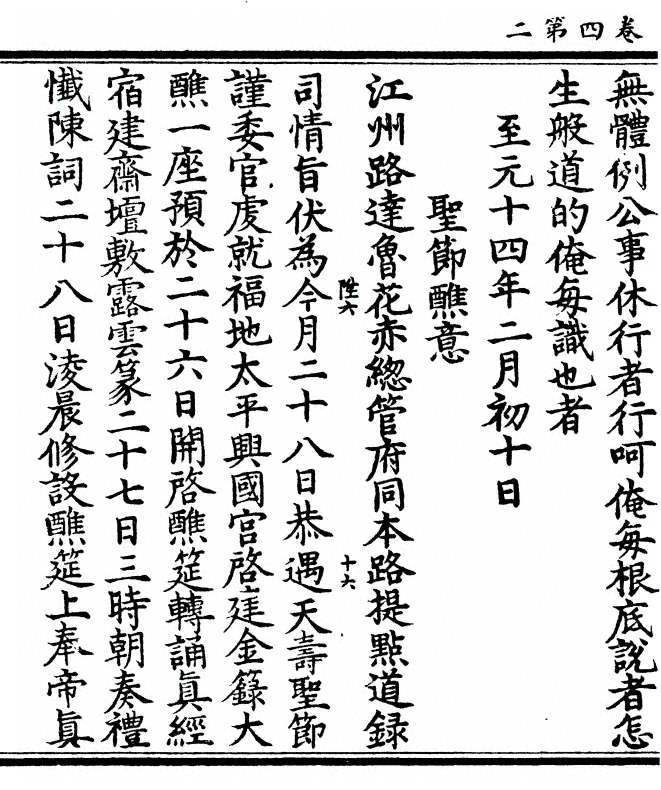 卷四第二
無體例公事休行者行呵俺每根底說者怎
生般道的俺每識也者
至元十四年二月初十日
聖節醮意
江州路達魯花赤總管府同本路提點道録
陞六
十六
司情旨伏為今月二十八日恭遇天壽聖節
謹委官虔就福地太平興國宮啓建金籙大
醮一座預於二十六日開啓醮筵轉誦真經
宿建齋壇敷露雲篆二十七日三時朝奏禮
懺陳詞二十八日淩晨修設醮筵上奉帝真